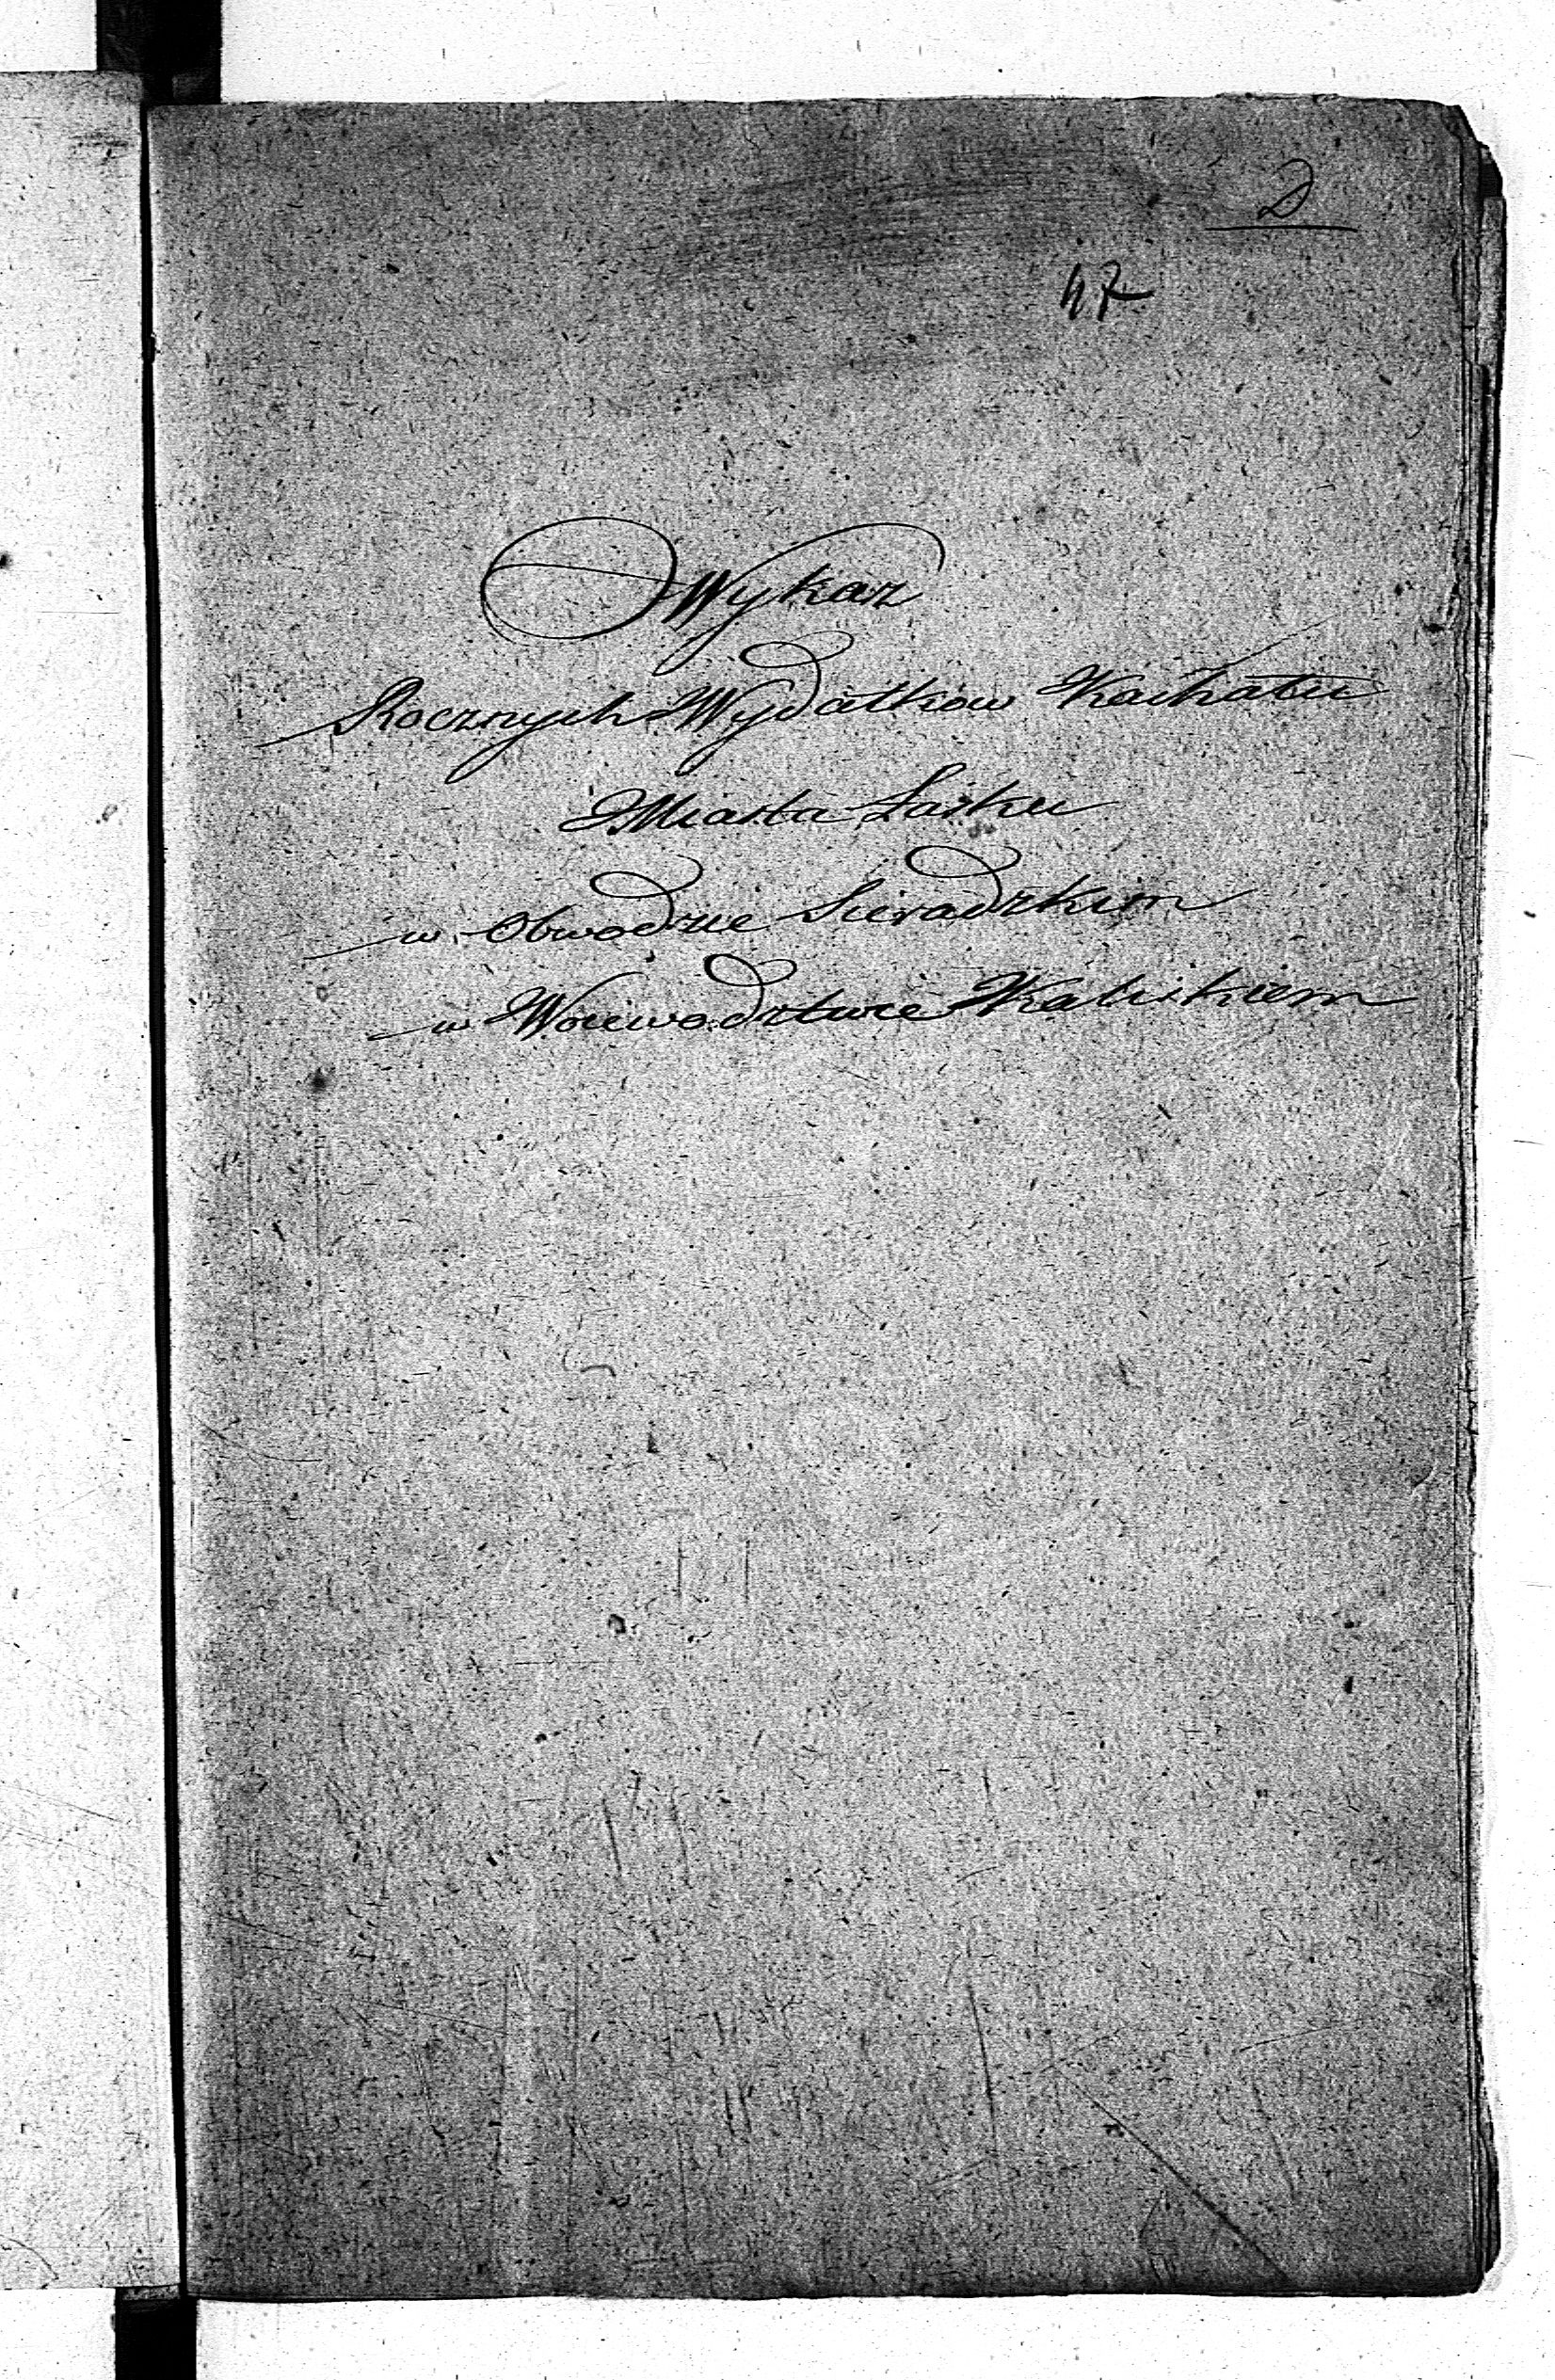 D
47
Wykaz
Rocznych Wydatkow Kachału
Miasta Łasku
w Obwodzie Sieradzkim
w Woiewodztwie Kaliskiem